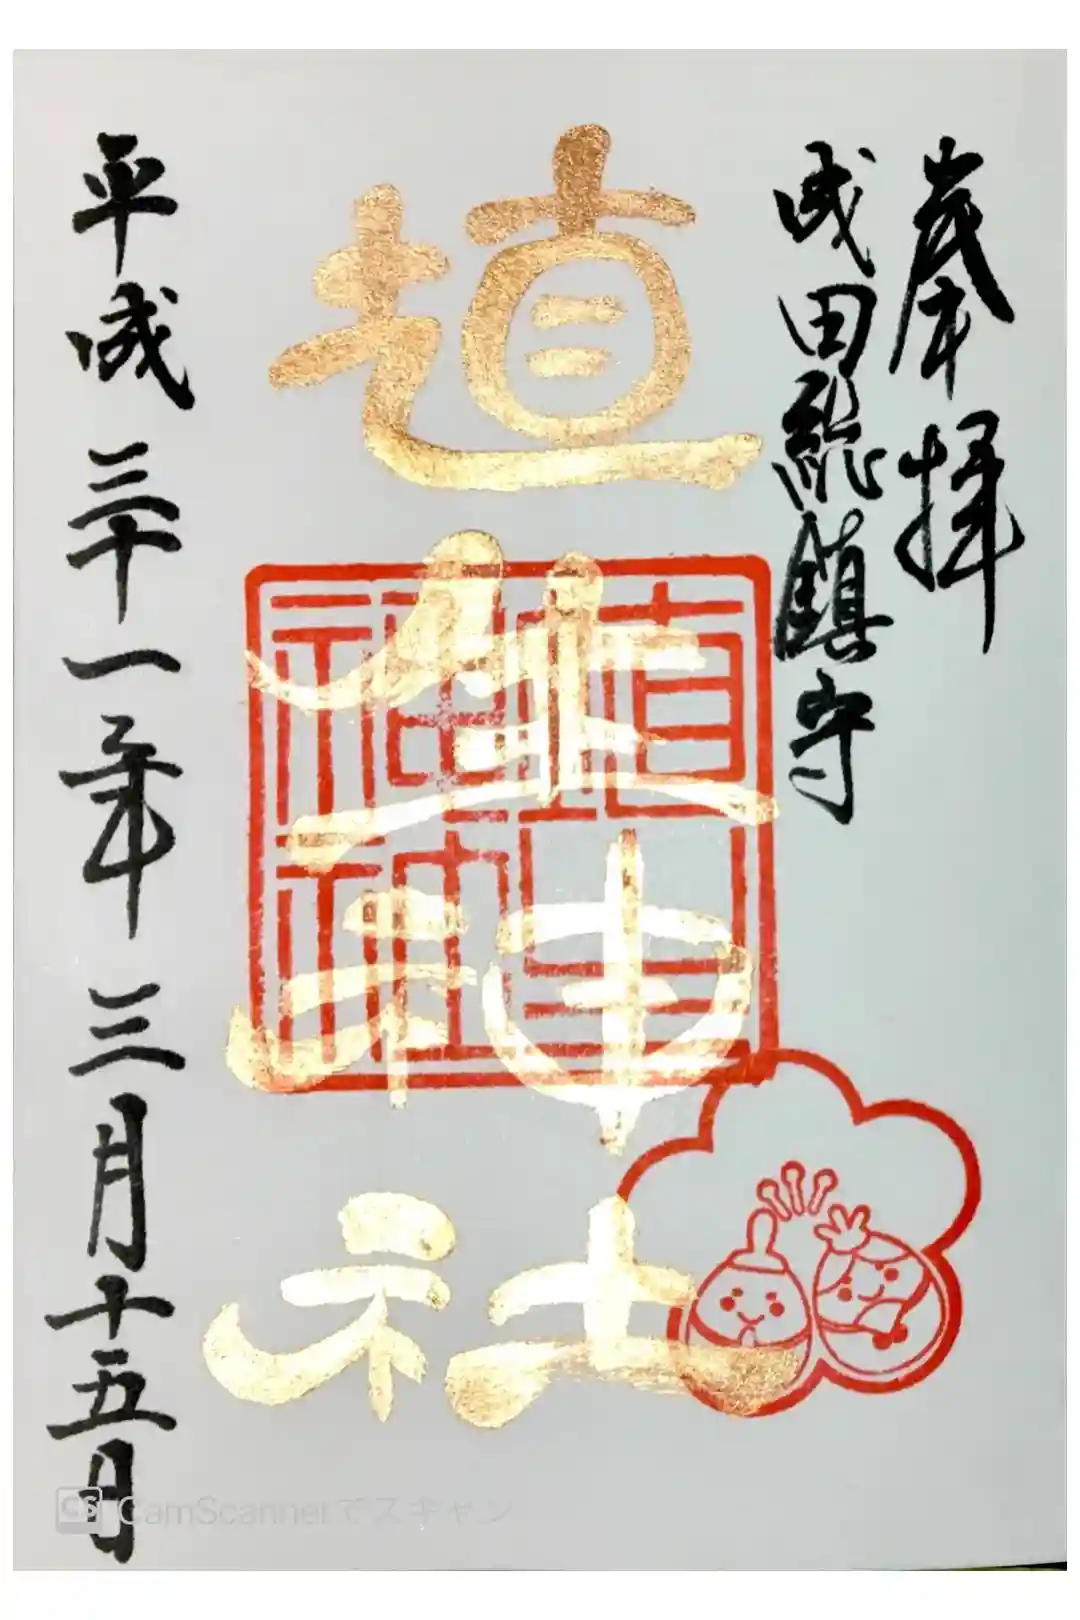 奉拝
成田総鎮守
埴生神社
埴生
神社
平成三十一年三月十五日
CS CamScannerでスキャン